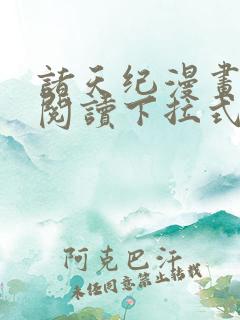 諸天纪漫畫
閱讀下拉式
阿克巴汗
未经同意禁止转载